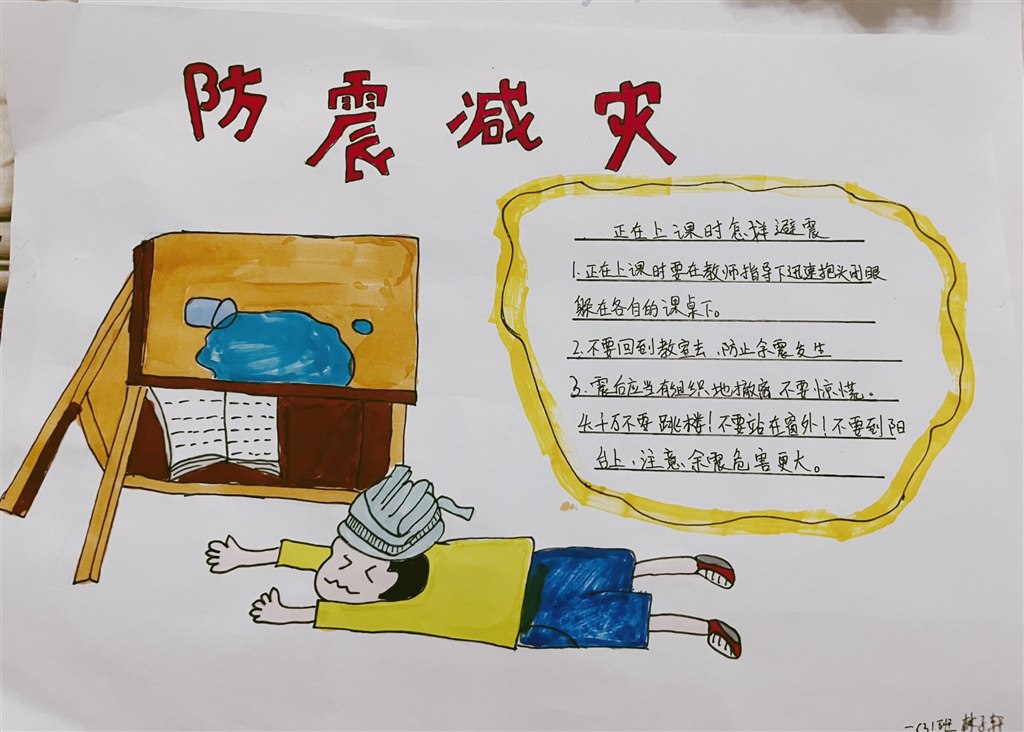 防震减灾
正在上课时怎样避震
1.正在上课时要在教师指导下迅速抱头闭眼
躲在各自的课桌下。
2.不要回到教室去、防止余震发生
3.震后应当有组织地撤离不要惊慌。
4.千万不要跳楼!不要站在窗外!不要到阳
台上、注意余震危害更大。
一(3)班 林子轩